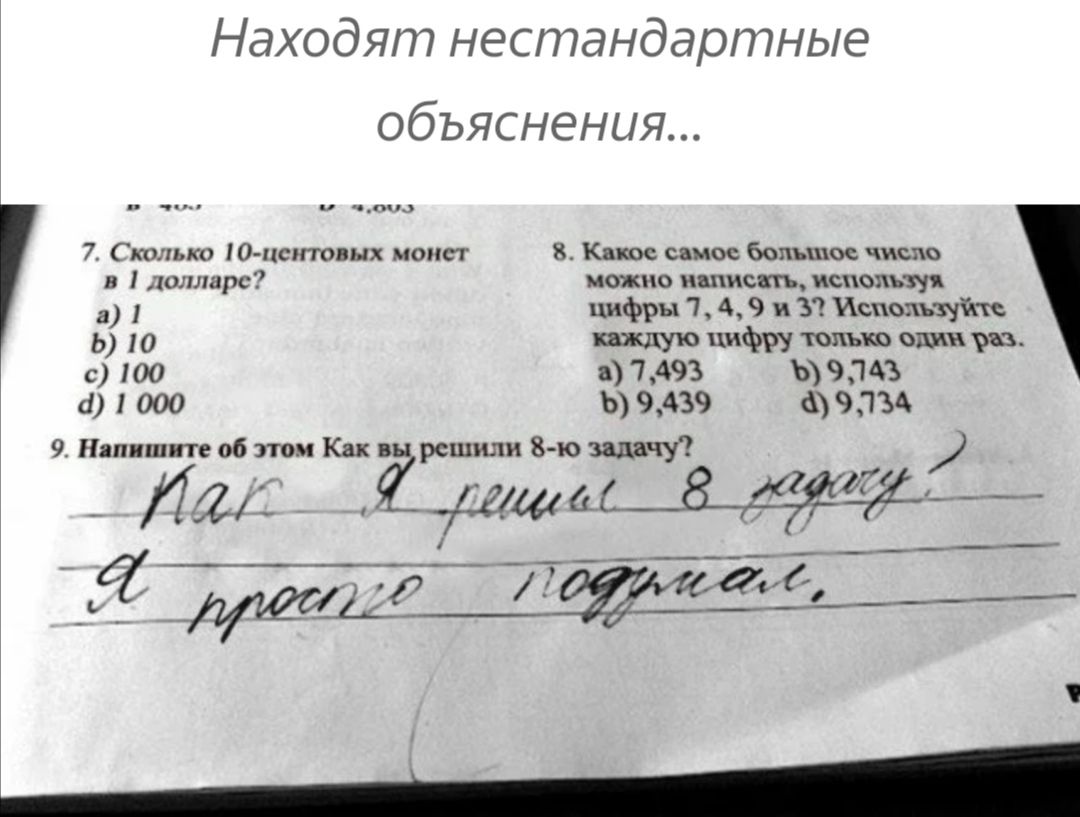 Находят нестандартные
объяснения...
7. Сколько 10-центовых монет
в 1 долларе?
a) 1
b) 10
c) 100
d) 1 000
8. Какое самое большое число
можно написать, используя
цифры 7, 4, 9 и 3? Используйте
каждую цифру только один раз.
a) 7,493 b) 9,743
b) 9,439 d) 9,734
9. Напишите об этом Как вы решили 8-ю задачу?
Как Я решил 8 задачу?
Я просто подумал.